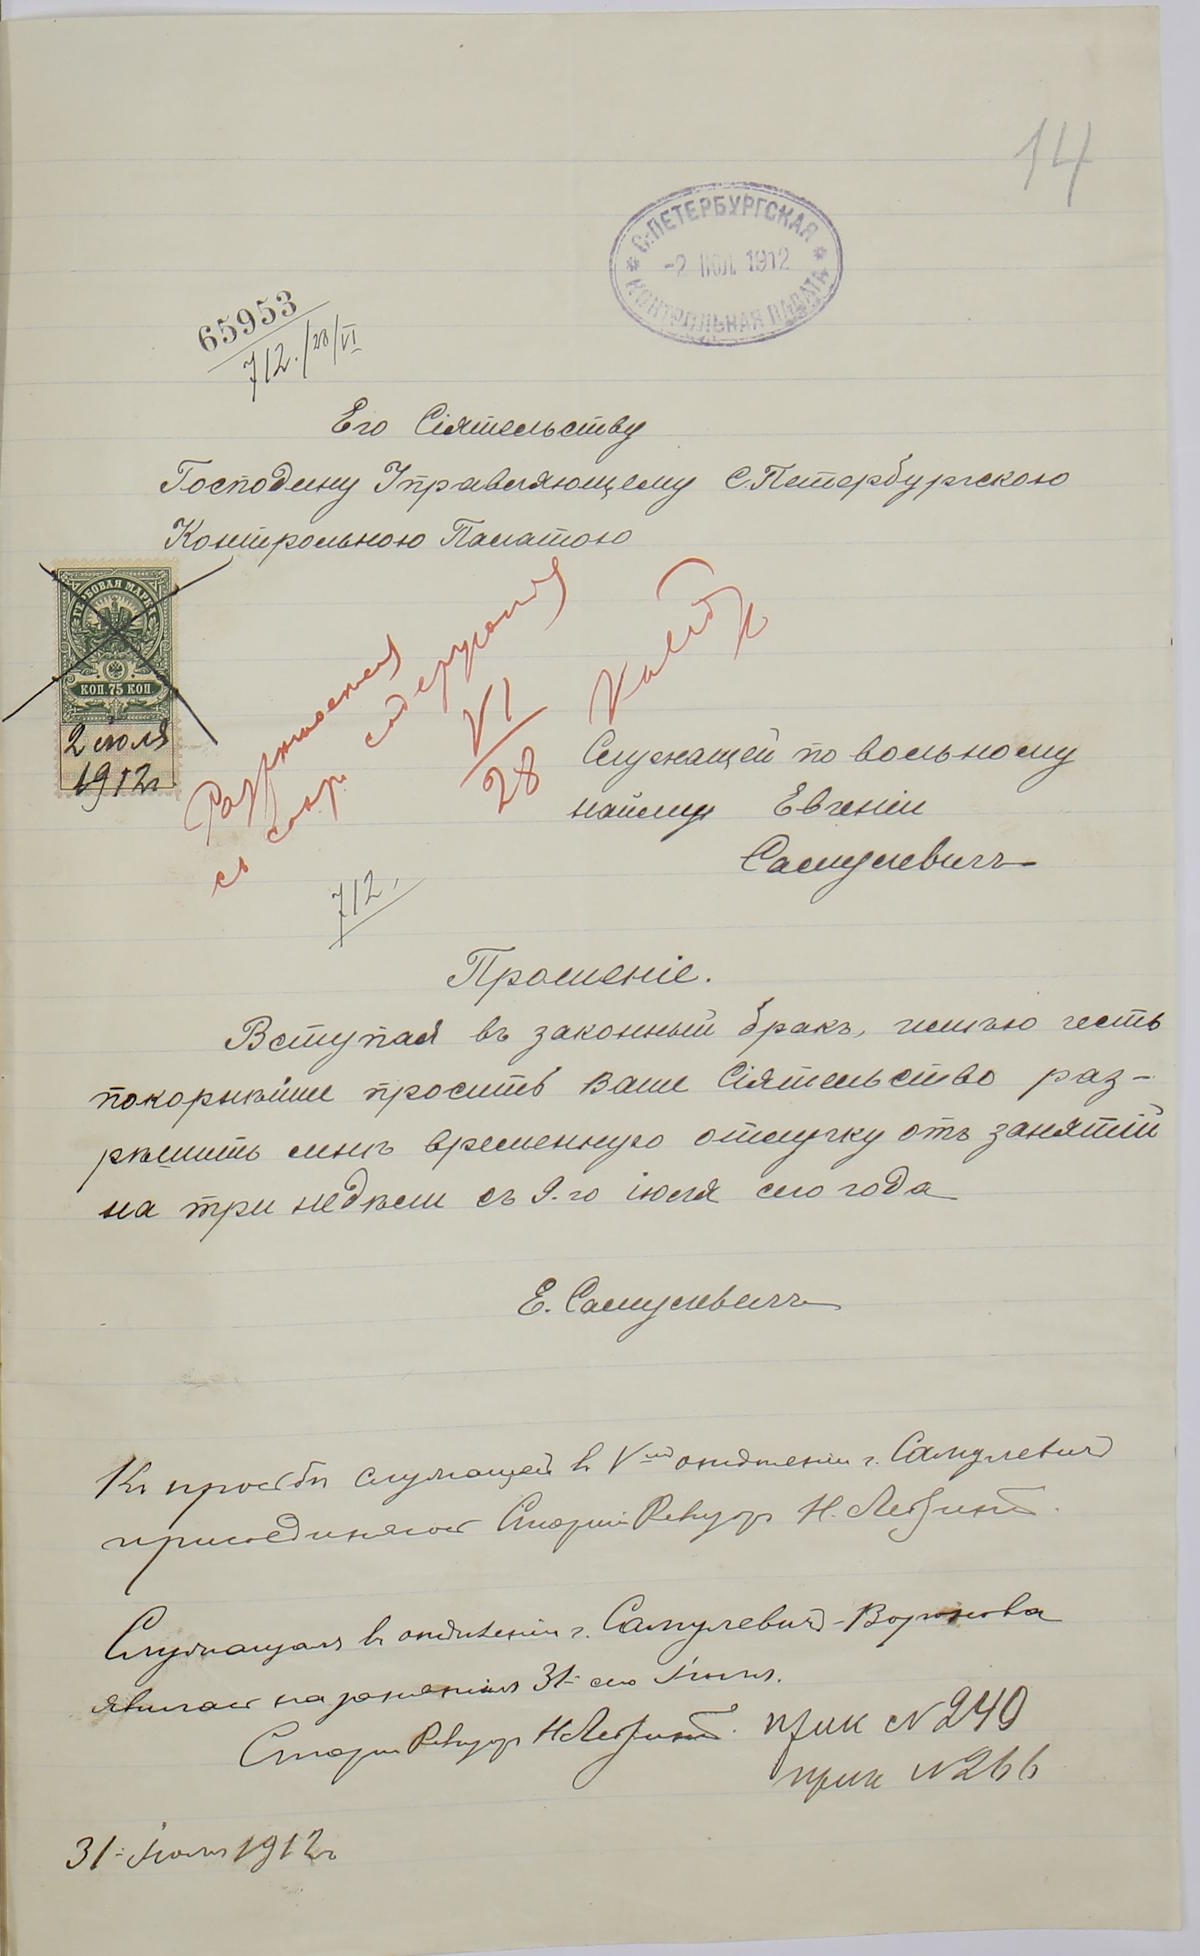 14
* С.ПЕТЕРБУРГСКАЯ *
-2 ІЮЛ. 1912
КОНТРОЛЬНАЯ ПАЛАТА
65953
712./28/VI
Его Сіятельству
Господину Управляющему С.Петербургскою
Контрольною Палатою
ГЕРБОВАЯ МАРКА
КОП. 75 КОП
2 іюля
1912г
Разрѣшается
съ сохр. содержанія
VI
28
Служащей по вольному
найму Евгеніи
Самулевичъ
712.
Прошеніе.
Вступая въ законный бракъ, имѣю честь
покорнѣйше просить Ваше Сіятельство раз-
рѣшить мнѣ временную отлучку отъ занятій
на три недѣли съ 9-го іюля сего года
Е. Самулевичъ
Къ просьбѣ служащей въ V-мъ отдѣленіи г. Самулевичъ
присоединяюсь Старшій Ревизоръ Н.
Служащая въ отдѣленіи г. Самулевичъ-Воронова
явилась на занятія 31-го сего Іюля.
Старшій Ревизоръ Н.
прик №240
прик №266
31-Іюля 1912г